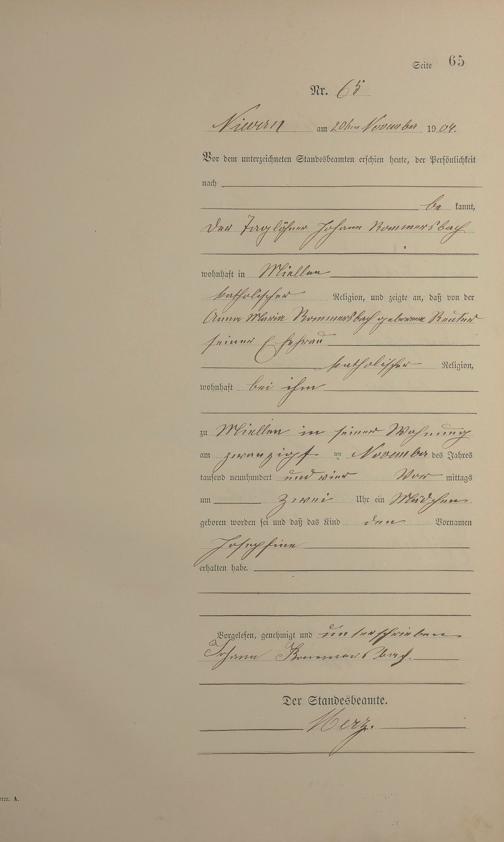 Seite 65
Nr. 65
Nievern am 20ten November 1904.
Vor dem unterzeichneten Standesbeamten erschien heute, der Persönlichkeit
nach
be kannt,
der Taglöhner Johann Rommersbach
wohnhaft in Miellen
katholischer Religion, und zeigte an, daß von der
Anna Maria Rommersbach geborene Reuter
seiner Ehefrau
katholischer Religion,
wohnhaft bei ihm
zu Miellen in seiner Wohnung
am zwanzigst en November des Jahres
tausend neunhundert und vier Vor mittags
um zwei Uhr ein Mädchen
geboren worden sei und daß das Kind den Vornamen
Josephine
erhalten habe.
Vorgelesen, genehmigt und unterschrieben
Johann Rommersbach.
Der Standesbeamte.
Merz.
A.